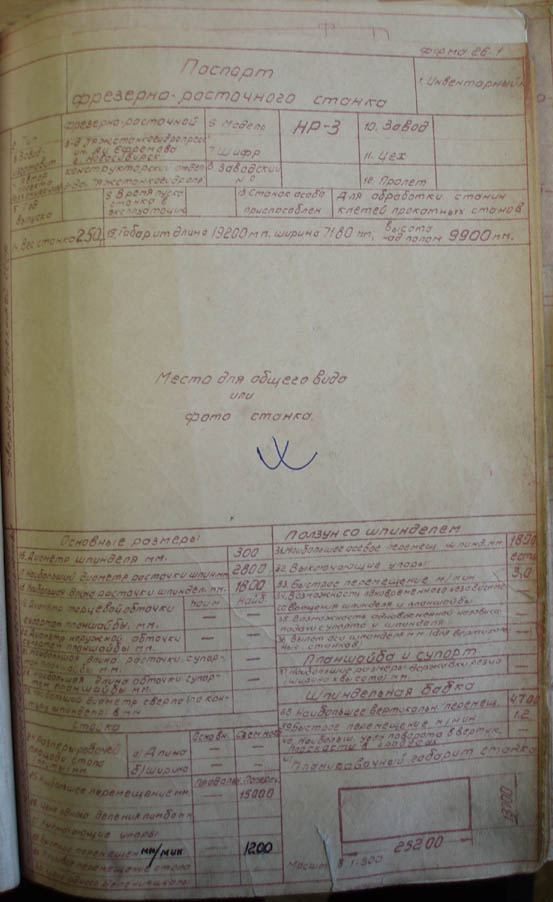 Форма 26.1
Паспорт
фрезерно-расточного станка
1. Инвентарный
Тип
Фрезерно-расточной
6. Модель
НР-3
10. Завод
з-д тяжстанкогидропресс
им. А.И. Ефремова
г. Новосибирск
7. Шифр
11. Цех
конструкторский отдел
8. Заводской
№
12. Пролет
Год
выпуска
9. Время пуска
станка в
эксплоатацию
13. Станок особо
приспособлен
Для обработки станин
клетей прокатных станов
14. Вес станка 250
15. Габарит длина 19200 мм. ширина 7180 мм. высота
над полом 9900 мм.
Место для общего вида
или
фото станка.
Основные размеры
16. Диаметр шпинделя мм. 300
17. Наибольший диаметр расточки шпинд. мм. 2800
18. Наибольшая длина расточки шпиндел. мм. 1800
19. Диаметр торцевой обточки
суппортом планшайбы. мм.
Наим. Наиб.
— —
20. Диаметр наружной обточки
суппортом планшайбы мм.
— —
21. Наибольшая длина расточки суппор-
том планшайбы мм.
— —
22. Наибольшая длина обточки суппор-
том планшайбы мм.
— —
23. Наибольший диаметр сверла (по кон-
струк. шпинделя) в мм.
Стойка
Основн. Съемное
24. Размеры рабочей
площади стола
а) Длина — —
б) Ширина — —
Продольн. Попереч.
25. Наибольшее перемещение мм. — 15000
26. Цена одного деления лимба
27. Выключающие упоры
28. Быстрое перемещен. мм/мин. — 1200
перемещение стола
Ползун со шпинделем
31. Наибольшее осевое перемещ. шпинд. мм 1800
32. Выключающие упоры есть
33. Быстрое перемещение м/мин 3,0
34. Возможность одновременного независимо-
го вращения шпинделя и планшайбы —
35. Возможность одновременной
подачи суппорта и шпинделя —
36. Вылет оси шпинделя мм. (для вертикаль-
ных станков) —
Планшайба и суппорт
37. Наибольшие размеры державки резца
(ширина х высота) мм. —
Шпиндельная бабка
38. Наибольшее вертикальн. перемещ. 4700
39. Быстрое перемещение м/мин 1.2
40. Наибольш. угол поворота в вертик.
плоскости в градусах —
41. Планировочный габарит станка
25200
Масштаб 1-300